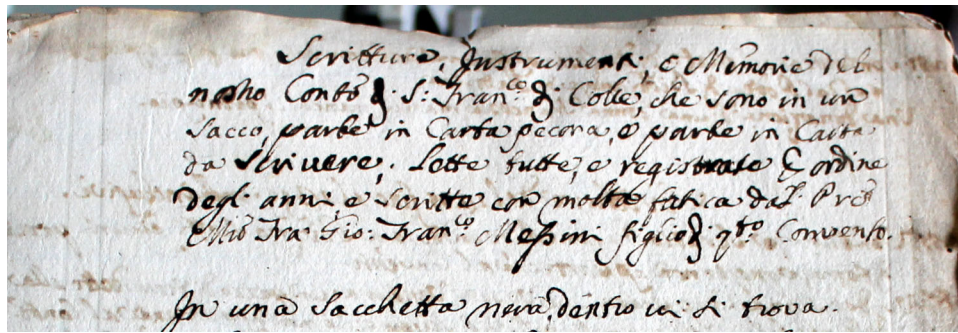 Scritture, Instrumenti, e Memorie del
nostro Conto di S: Franco di Colle, che sono in un
sacco, parte in Carta pecora, e parte in Carta
da scrivere. Lette tutte, e registrate ordine
degl' anni, e scritte con molta fatica dal
Fra Gio: Franco Messini figlio di qto Convento.
In una sacchetta nera, dentro vi si trova.